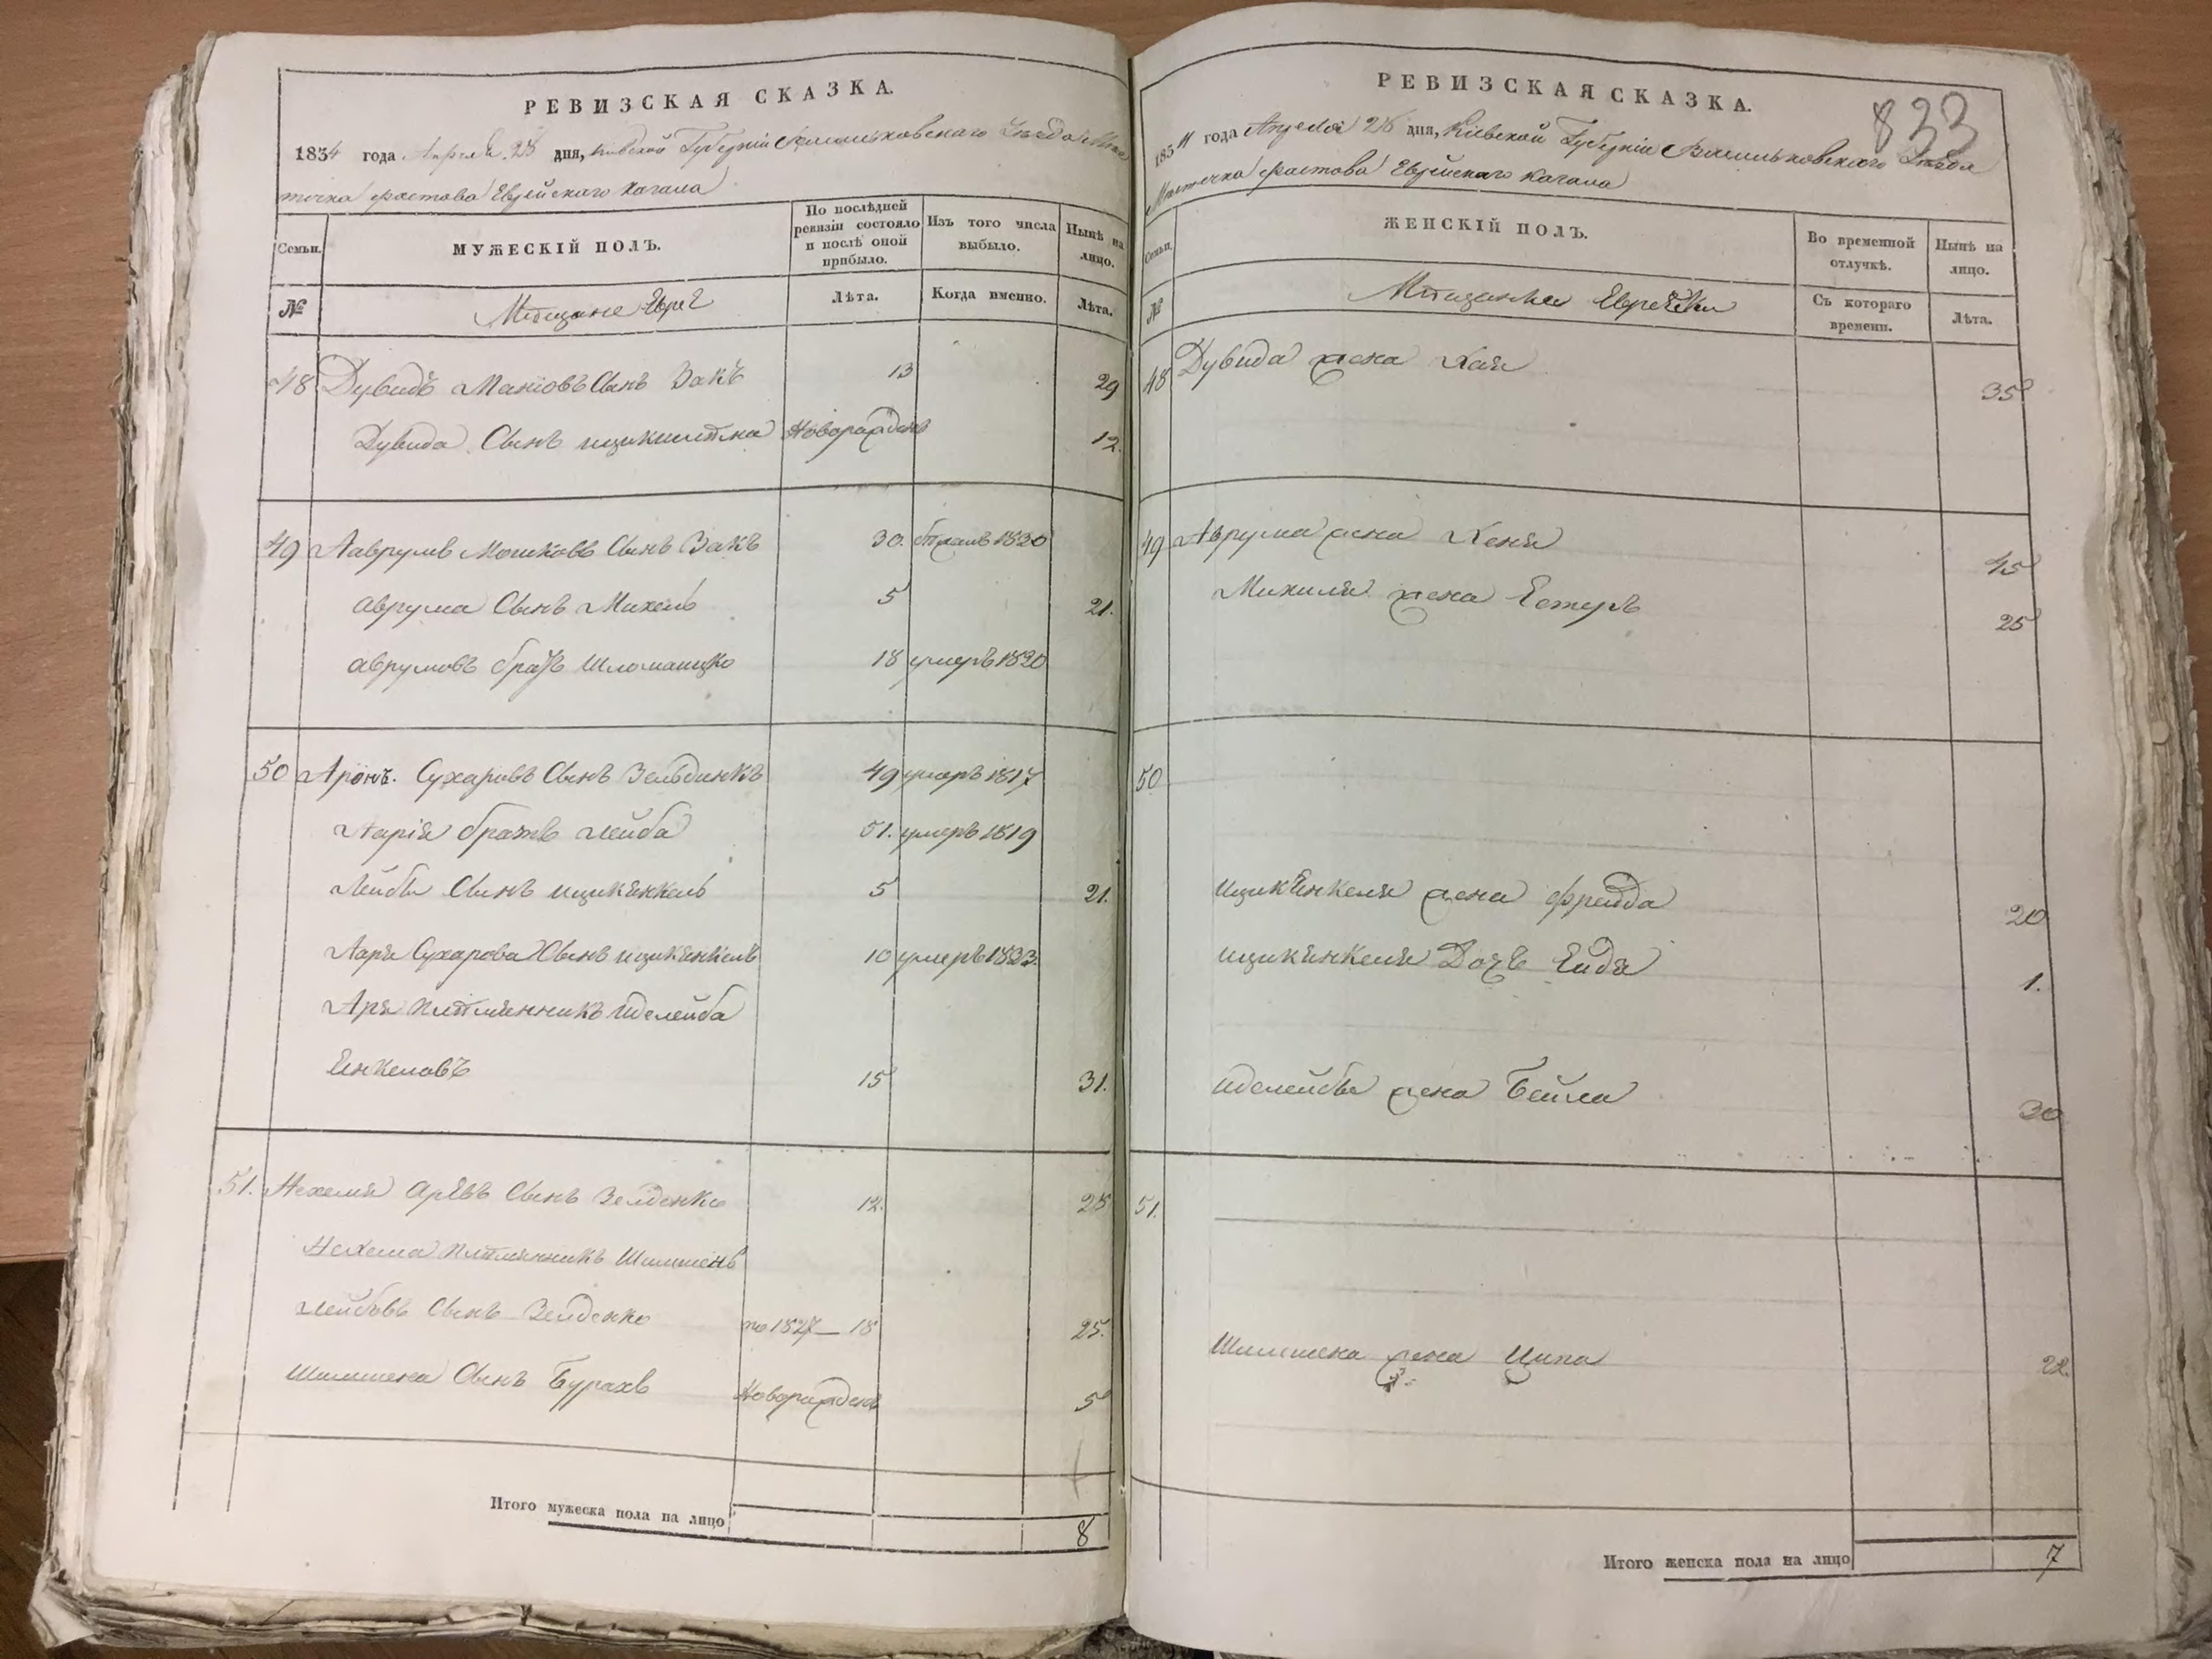 РЕВИЗСКАЯ СКАЗКА.
1834 года Апреля 28 дня, Киевской Губерніи Васильковскаго Уезда Мес
течка Фастова Еврейскаго Кагала
Семьи.
МУЖЕСКІЙ ПОЛЪ.
По послѣдней ревизіи состояло и послѣ оной прибыло.
Изъ того числа выбыло.
Нынѣ на лицо.
№
Мещане Евреи
Лѣта.
Когда именно.
Лѣта.
48 Дувидъ Маніовъ Сынъ Закъ 13 29
Дувида Сынъ Новорожденъ 12.
49 Аврумъ Мошковъ Сынъ Закъ 30. 1830
Аврума Сынъ Михель 5 21.
Аврумовъ братъ Шломаицко 18 умеръ 1820
50 Аронъ. Сухаровъ Сынъ Зельдинкъ 49 умеръ 1817
Аарія братъ Лейба 51. умеръ 1819
Лейбы Сынъ Ицикянкель 5 21.
Ааря Сухарова Сынъ Ицикянкель 10 умеръ 1833.
Аря Племянникъ Иделейба
Енкеловъ 15 31.
51. Нехемя Арьевъ Сынъ Зелденко 12. 28
Нехема Племянникъ Шлименъ
Лейбовъ Сынъ Зелденко по 1827 — 18 25.
Сынъ Бурахъ Новорожденъ 5
Итого мужеска пола на лицо 8
833
РЕВИЗСКАЯ СКАЗКА.
1834 года Апреля 28 дня, Кіевской Губерніи Васильковскаго Уезда
Местечка Фастова Еврейскаго Кагала
Семьи.
ЖЕНСКІЙ ПОЛЪ.
Во временной отлучкѣ.
Нынѣ на лицо.
№
Мещанки Еврейки
Съ котораго времени.
Лѣта.
48 Дувида жена Хая 35
49 Аврума жена Хеня 45
Михиля жена Естеръ 25
50
Ицикъенкеля жена Фрейда 20
Ицикянкеля Дочь Ейдя 1.
Иделейбы жена Бейла 30
51.
жена Ципа 22.
Итого женска пола на лицо 7